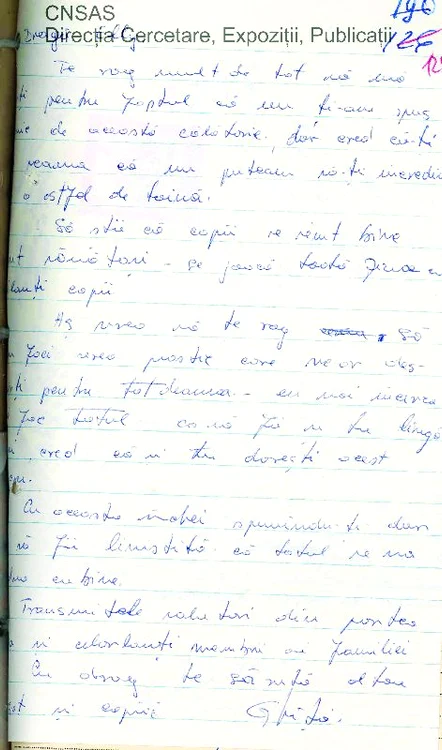 CNSAS
Direcția Cercetare, Expoziții, Publicații
196
126
Te rog mult de tot să mă
ți pentru faptul că nu ți-am spus
de această călătorie, dar cred că-ți
seama că nu puteam să-ți încredi
o astfel de taină.
Să știi că copii se simt bine
sănătoși - se joacă toată ziua
copii
Aș vrea să te rog să
faci vreo prostie care ne-ar des-
ți pentru totdeauna - eu voi încerca
fac totul ca să fii tu lîngă
cred că și tu dorești acest
Cu aceasta închei spunîndu-ți doar
să fii liniștită că totul se va
cu bine.
Transmite salutări din partea
și celorlalți membri ai familiei
Cu drag te sărută al tău
și copiii